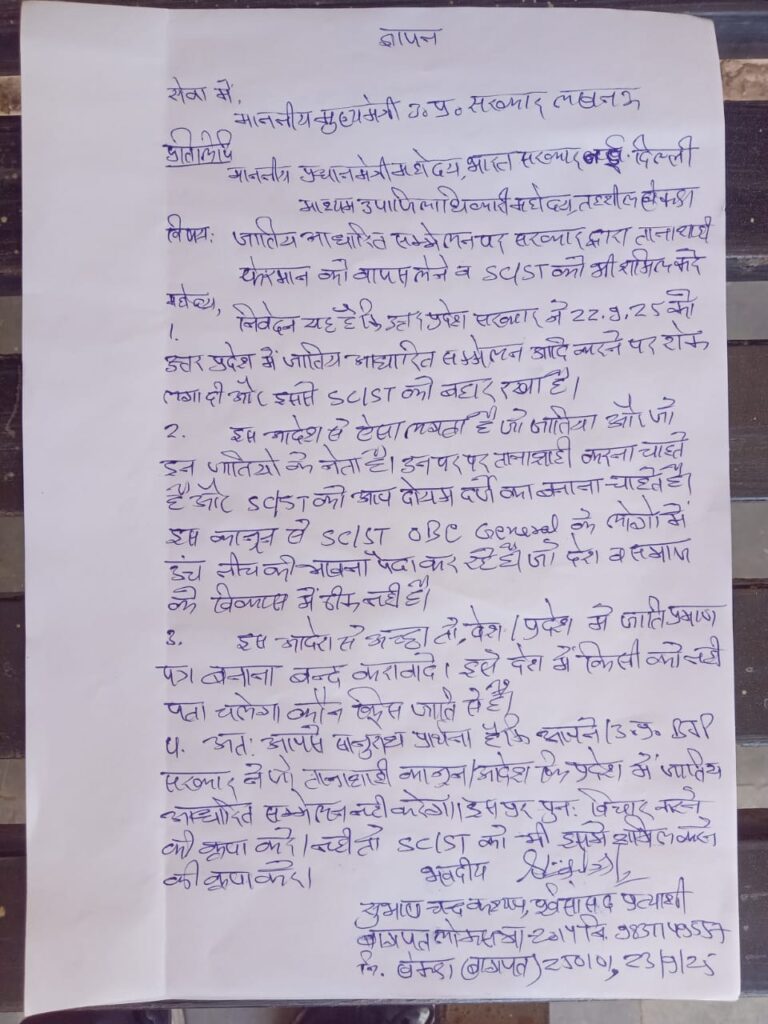 ज्ञापन
सेवा में,
माननीय मुख्यमंत्री उ.प्र. सरकार लखनऊ
प्रतिलिपि
माननीय प्रधानमंत्री महोदय, भारत सरकार नई दिल्ली
माध्यम उपजिलाधिकारी महोदय, तहसील खेकड़ा
विषय: जातिय आधारित सम्मेलन पर सरकार द्वारा तानाशाही
फरमान को वापस लेने व SC/ST को भी शामिल करे
महोदय,
1. निवेदन यह है कि उत्तर प्रदेश सरकार ने 22.9.25 को
उत्तर प्रदेश में जातिय आधारित सम्मेलन आदि करने पर रोक
लगा दी और इससे SC/ST को बहार रखा है।
2. इस आदेश से ऐसा लगता है जो जातिया और जो
इन जातियो के नेता है। उन पर पर तानाशाही करना चाहते
है और SC/ST को आप दोयम दर्जे का बनाना चाहते है।
इस कानून से SC/ST OBC General के लोगो में
उंच नीच की भावना पैदा कर रहे है। जो देश व समाज
के विकास में ठीक नही है।
3. इस आदेश से अच्छा तो, देश/प्रदेश में जाति प्रमाण
पत्र बनाना बन्द करवादे। इसे देश में किसी को नही
पता चलेगा कौन किस जाति से है।
4. अत: आपसे सानुरोध प्रार्थना है कि आपने/उ.प्र. BJP
सरकार ने जो तानाशाही कानून/आदेश कि प्रदेश में जातिय
आधारित सम्मेलन नही करेगें।। इस पर पुन: विचार करने
की कृपा करे। नही तो SC/ST को भी इसमें शामिल करने
की कृपा करे।
भवदीय
सुभाष चन्द कश्यप, पूर्व सांसद प्रत्याशी
बागपत लोकसभा 2014
नि. खेकड़ा (बागपत) 250101, 23/9/25